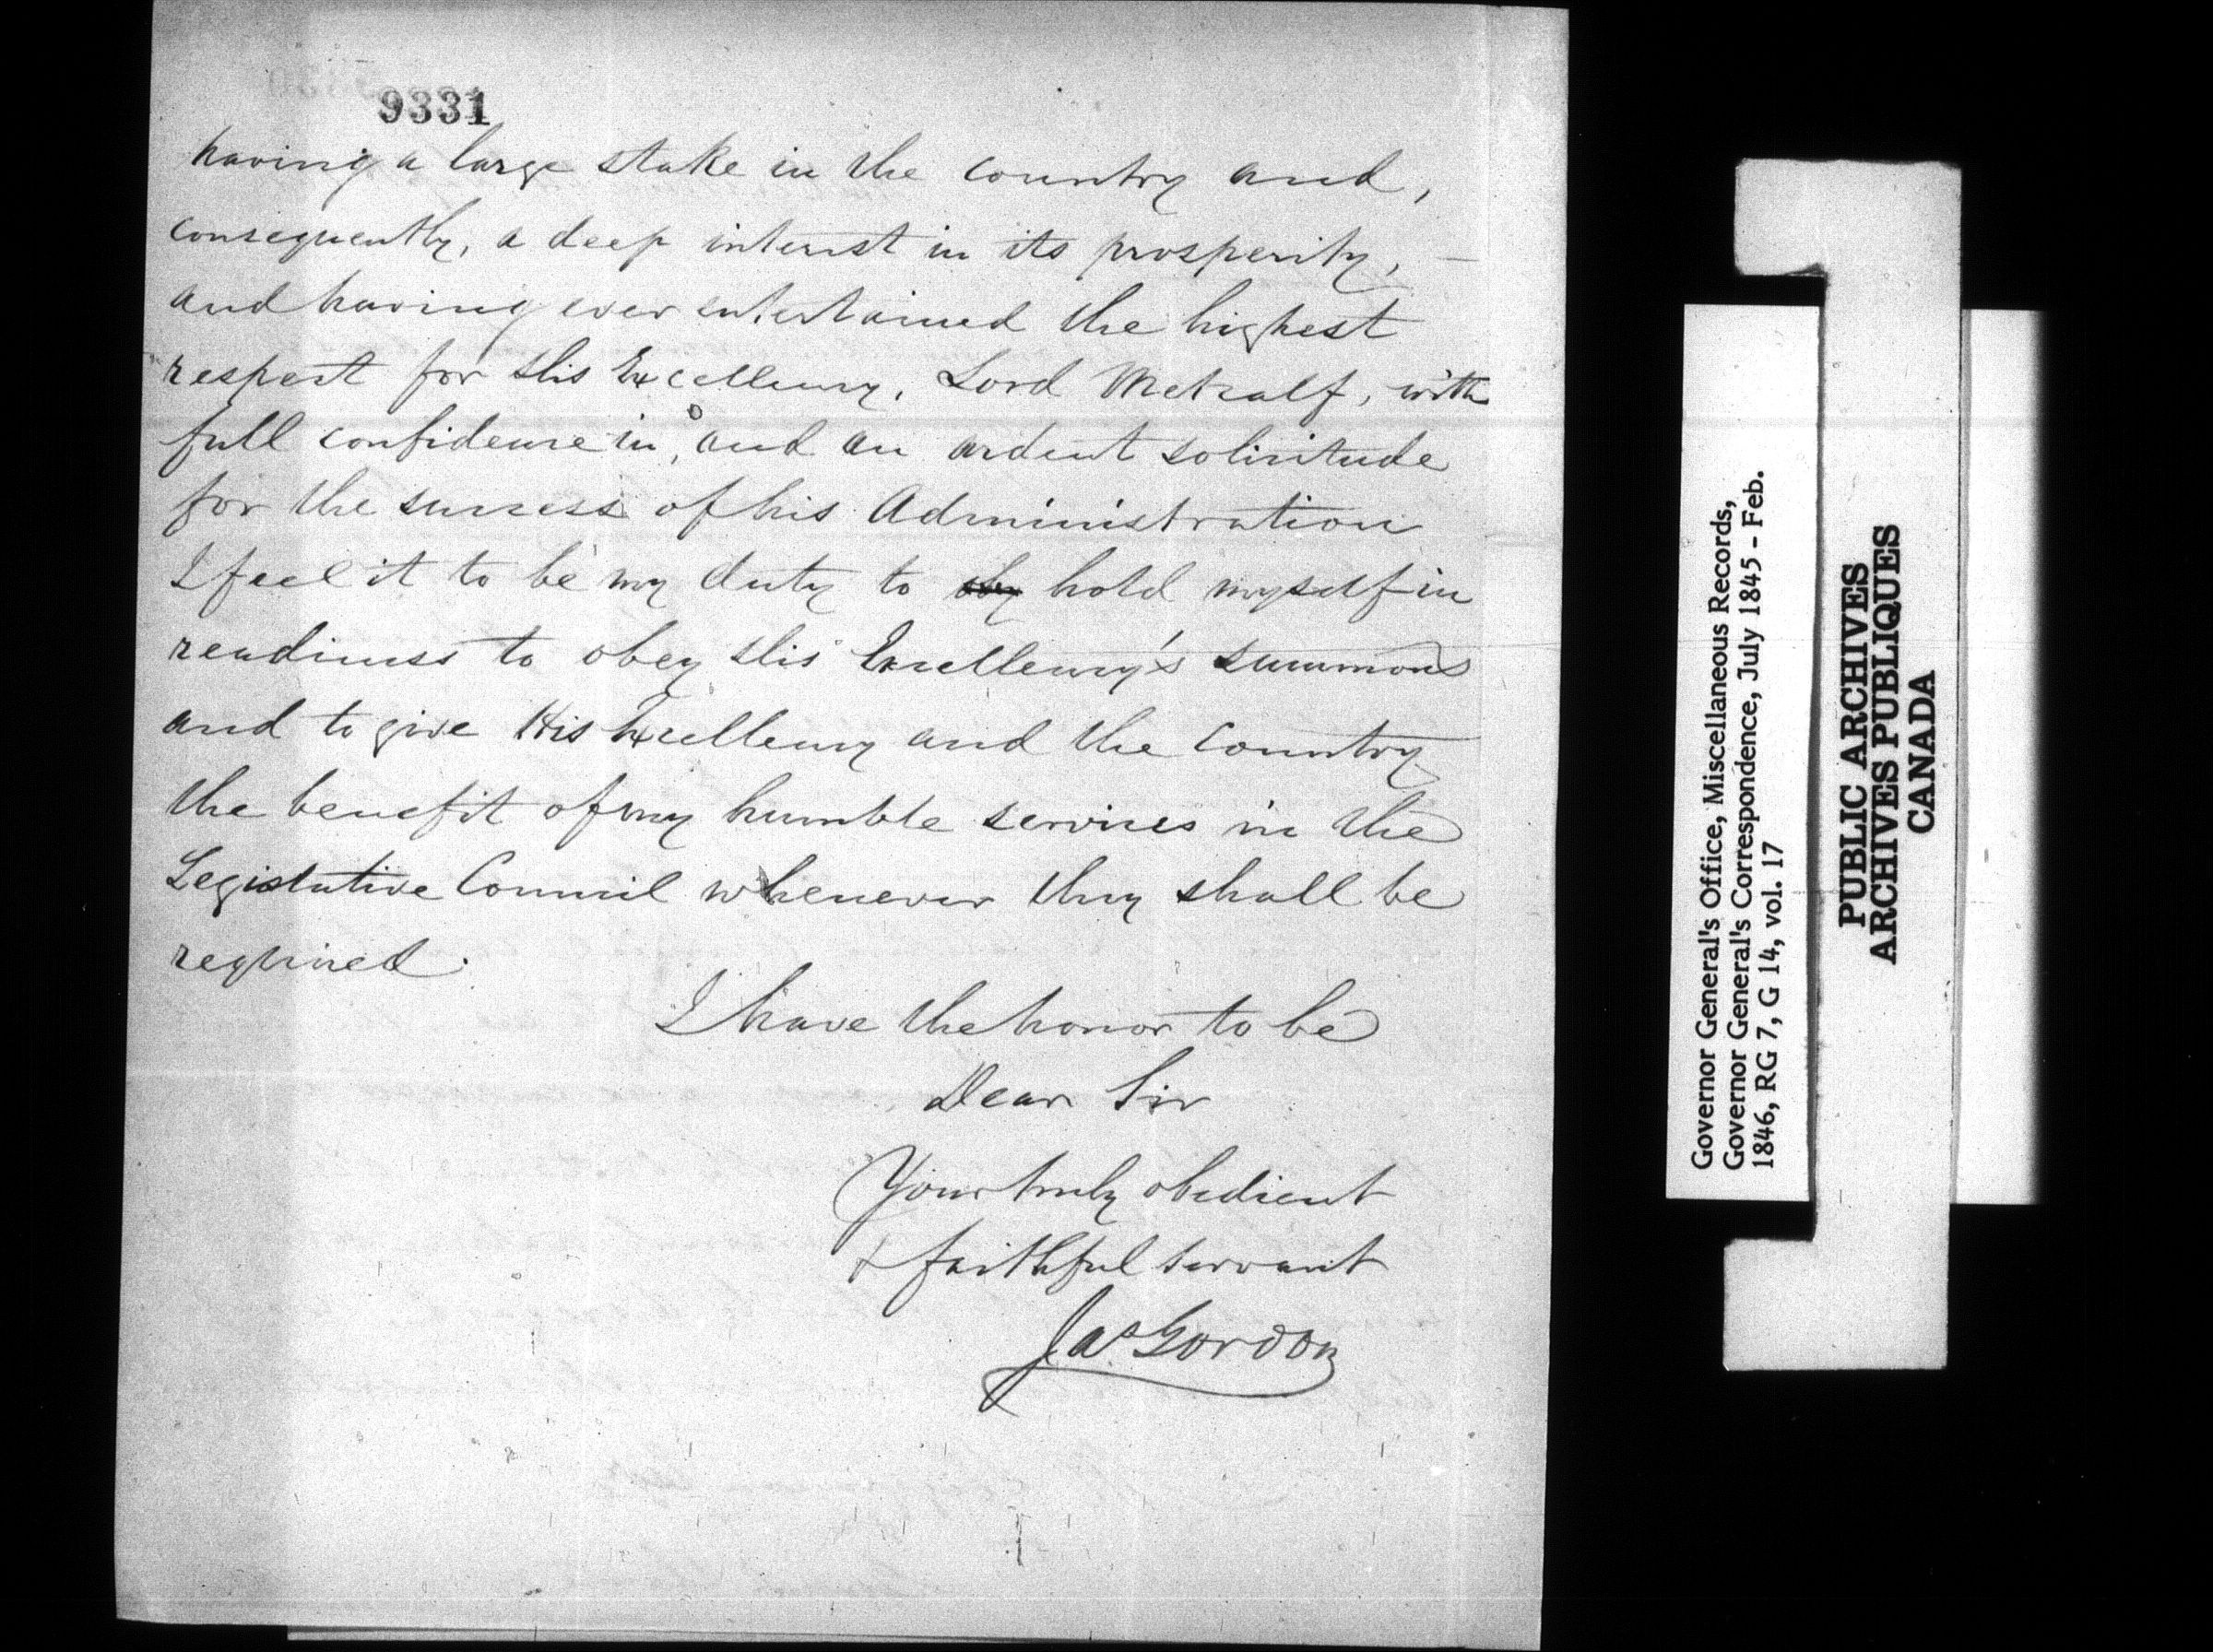 9331
having a large stake in the country and,
consequently, a deep interest in its prosperity, —
and having ever entertained the highest
respect for His Excellency, Lord Metcalf, with
full confidence in, and an ardent solicitude
for the success of his Administration
I feel it to be my duty to hold myself in
readiness to obey His Excellency's summons
and to give His Excellency and the Country
the benefit of my humble services in the
Legislative Council whenever they shall be
required.
I have the honor to be
Dear Sir
Your truly obedient
& faithful servant
Jas Gordon
Governor General's Office, Miscellaneous Records,
Governor General's Correspondence, July 1845 - Feb.
1846, RG 7, G 14, vol. 17
PUBLIC ARCHIVES
ARCHIVES PUBLIQUES
CANADA